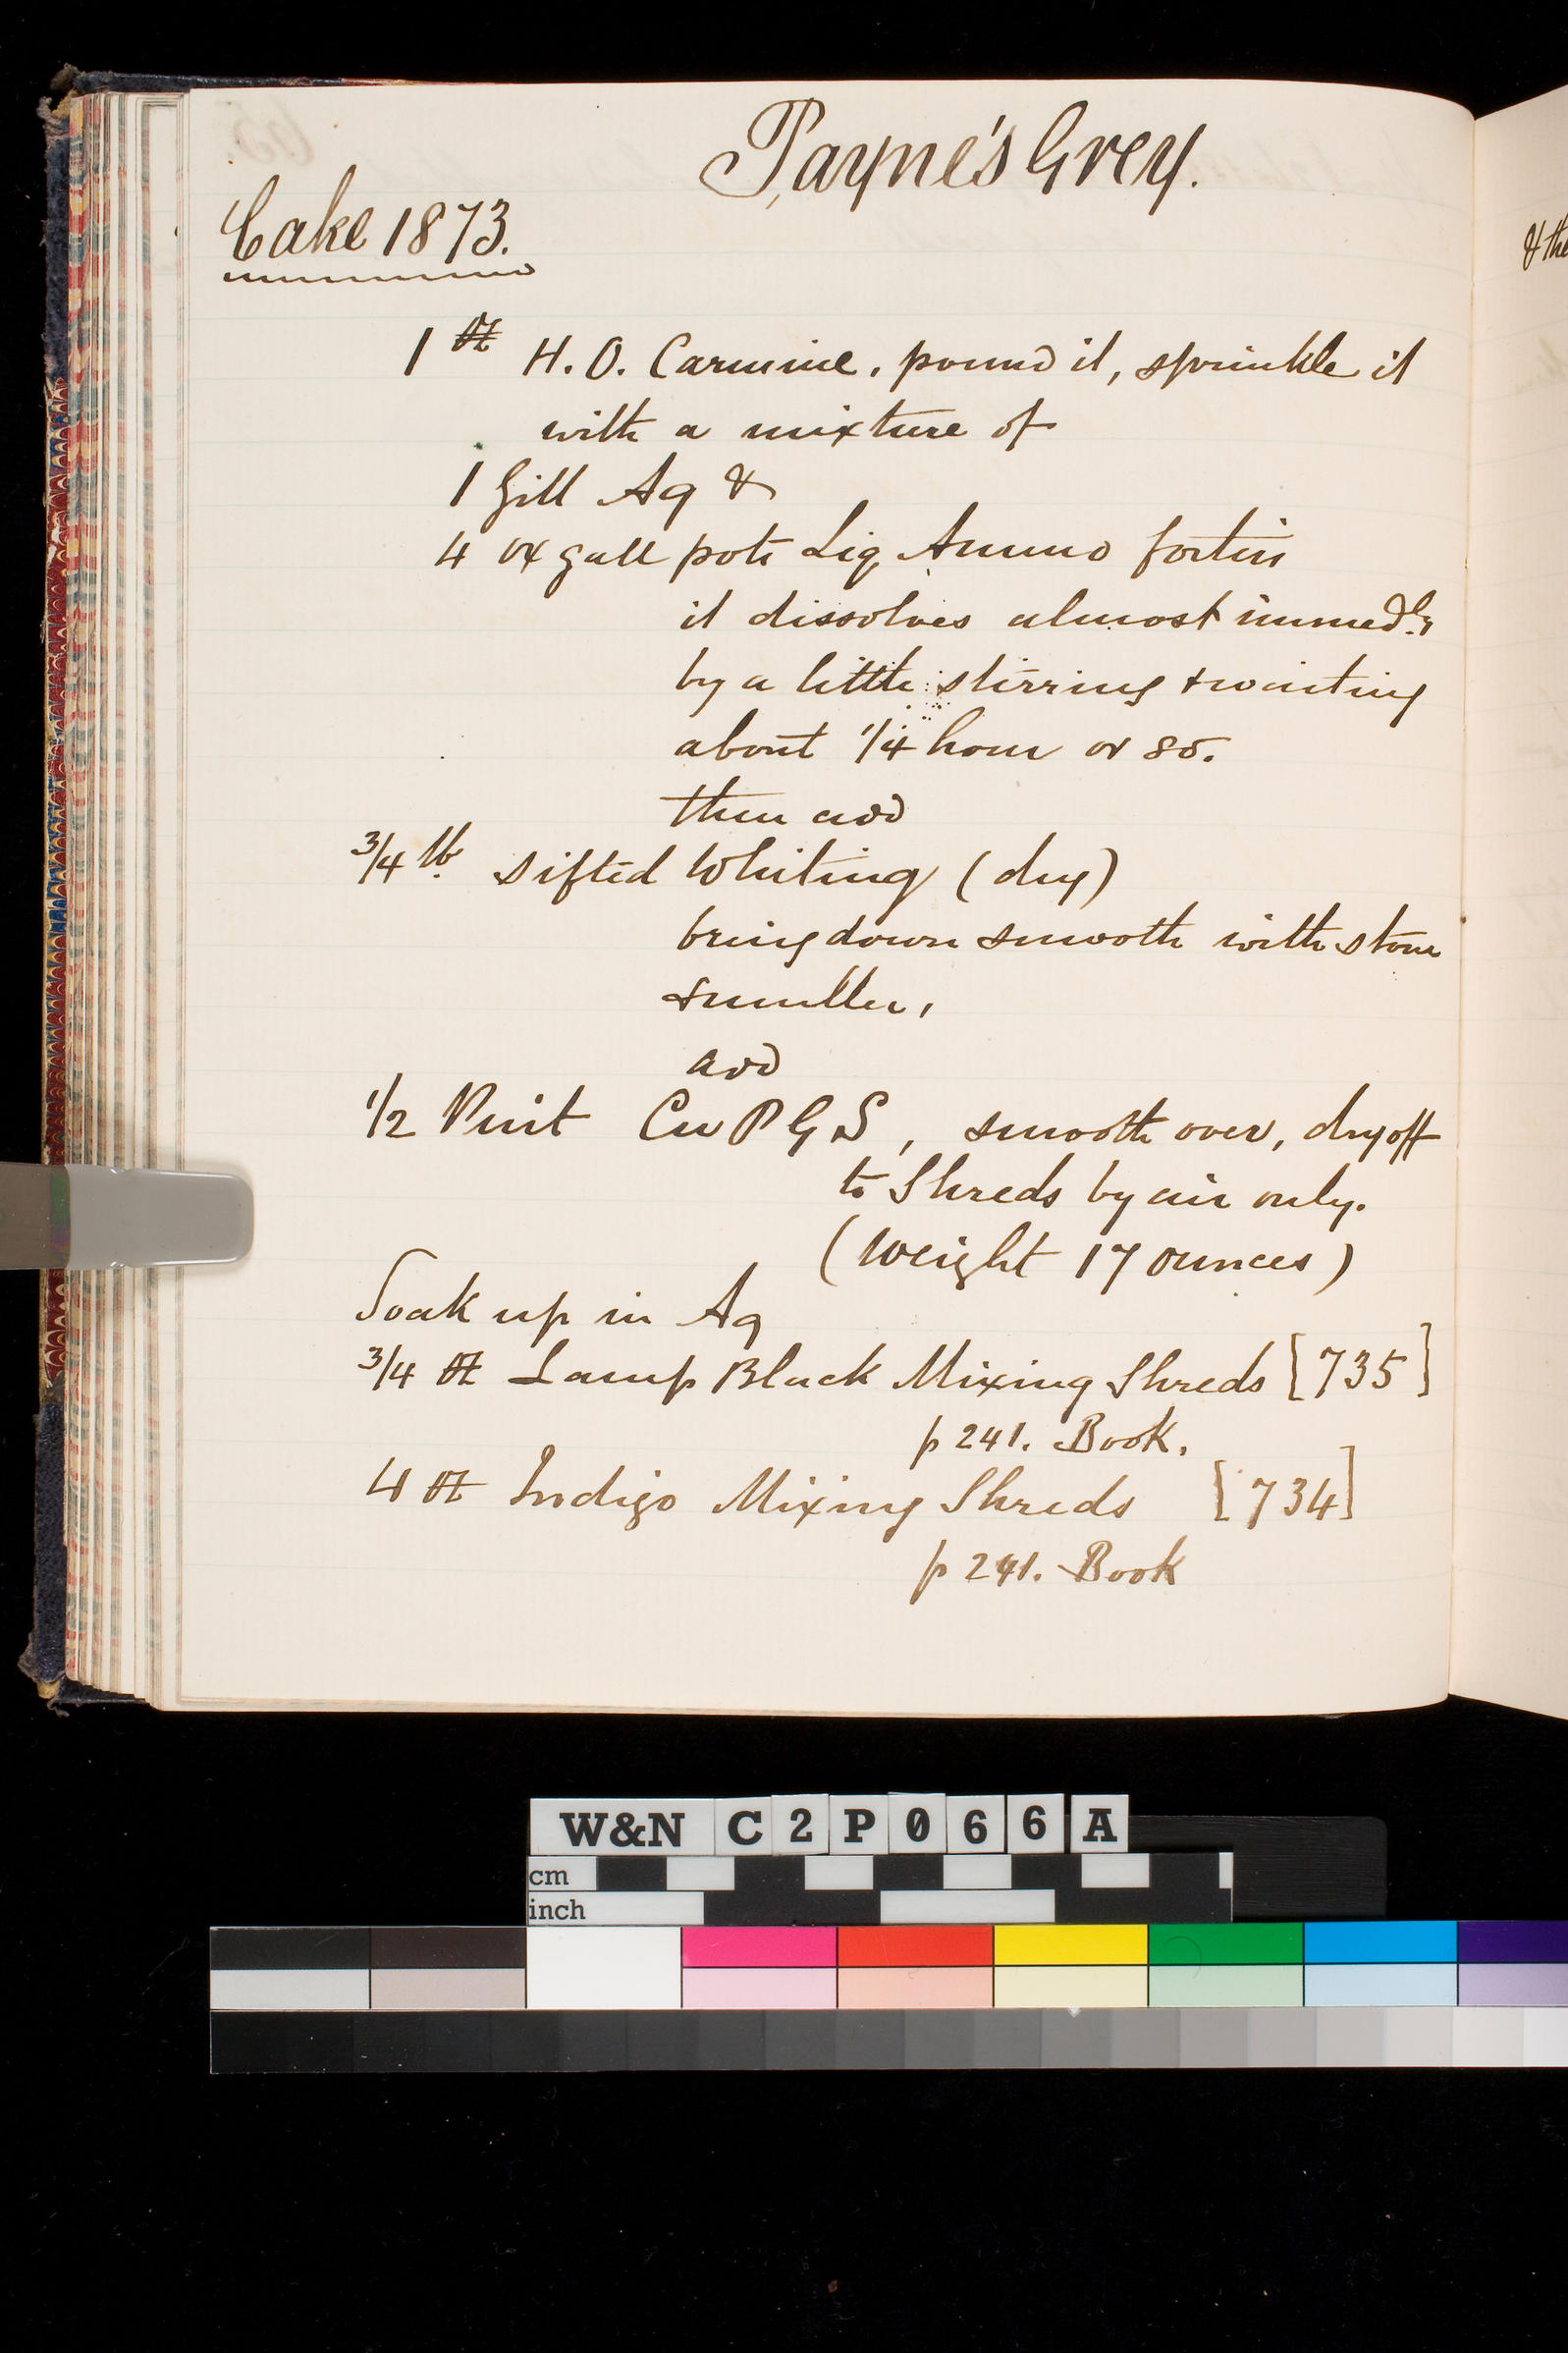 Payne's Grey.
Cake 1873.
1 ℔ H. O. Carmine, pound it, sprinkle it
with a mixture of
1 Gill Aq &
4 ox gall pots Liq Ammo fortis
it dissolves almost immedly
by a little stirring & waiting
about 1/4 hour or so.
then add
3/4 lb sifted Whiting (dry)
bring down smooth with stone
& muller,
add
1/2 Pint Cw P G S, smooth over, dry off
to Shreds by air only.
(Weight 17 ounces)
Soak up in Aq
3/4 ℔ Lamp Black Mixing Shreds [735]
p 241. Book.
4 ℔ Indigo Mixing Shreds [734]
p 241. Book
& the
W&N C2P066A
cm
inch